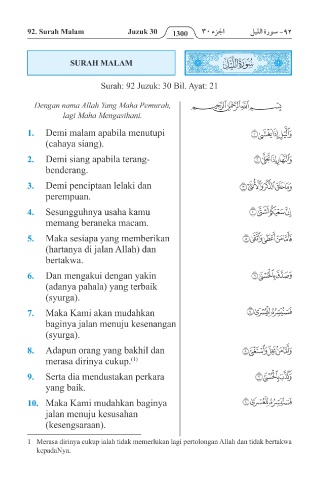 92. Surah Malam Juzuk 30 1300 الجزء ٣٠ ٩٢- سورة الليل
SURAH MALAM سُورَةُ اللَّيْلِ
Surah: 92 Juzuk: 30 Bil. Ayat: 21
Dengan nama Allah Yang Maha Pemurah, بِسْمِ اللَّهِ الرَّحْمَٰنِ الرَّحِيمِ
lagi Maha Mengasihani.
1. Demi malam apabila menutupi وَاللَّيْلِ إِذَا يَغْشَىٰ ١
(cahaya siang).
2. Demi siang apabila terang- وَالنَّهَارِ إِذَا تَجَلَّىٰ ٢
benderang.
3. Demi penciptaan lelaki dan وَمَا خَلَقَ الذَّكَرَ وَالْأُنثَىٰ ٣
perempuan.
4. Sesungguhnya usaha kamu إِنَّ سَعْيَكُمْ لَشَتَّىٰ ٤
memang beraneka macam.
5. Maka sesiapa yang memberikan فَأَمَّا مَنْ أَعْطَىٰ وَاتَّقَىٰ ٥
(hartanya di jalan Allah) dan
bertakwa.
6. Dan mengakui dengan yakin وَصَدَّقَ بِالْحُسْنَىٰ ٦
(adanya pahala) yang terbaik
(syurga).
7. Maka Kami akan mudahkan فَسَنُيَسِّرُهُ لِلْيُسْرَىٰ ٧
baginya jalan menuju kesenangan
(syurga).
8. Adapun orang yang bakhil dan وَأَمَّا مَنْ بَخِلَ وَاسْتَغْنَىٰ ٨
merasa dirinya cukup.(1)
9. Serta dia mendustakan perkara وَكَذَّبَ بِالْحُسْنَىٰ ٩
yang baik.
10. Maka Kami mudahkan baginya فَسَنُيَسِّرُهُ لِلْعُسْرَىٰ ١٠
jalan menuju kesusahan
(kesengsaraan).
1 Merasa dirinya cukup ialah tidak memerlukan lagi pertolongan Allah dan tidak bertakwa
kepadaNya.